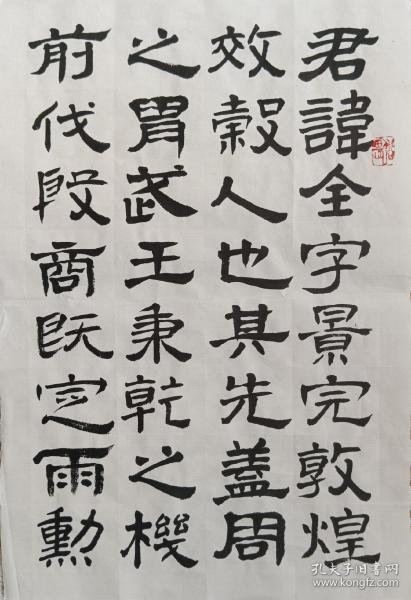 君諱全字景完敦煌
效穀人也其先盖周
之胄武王秉乾之機
前伐殷商既定雨勳
孔夫子旧书网
www.kongfz.com